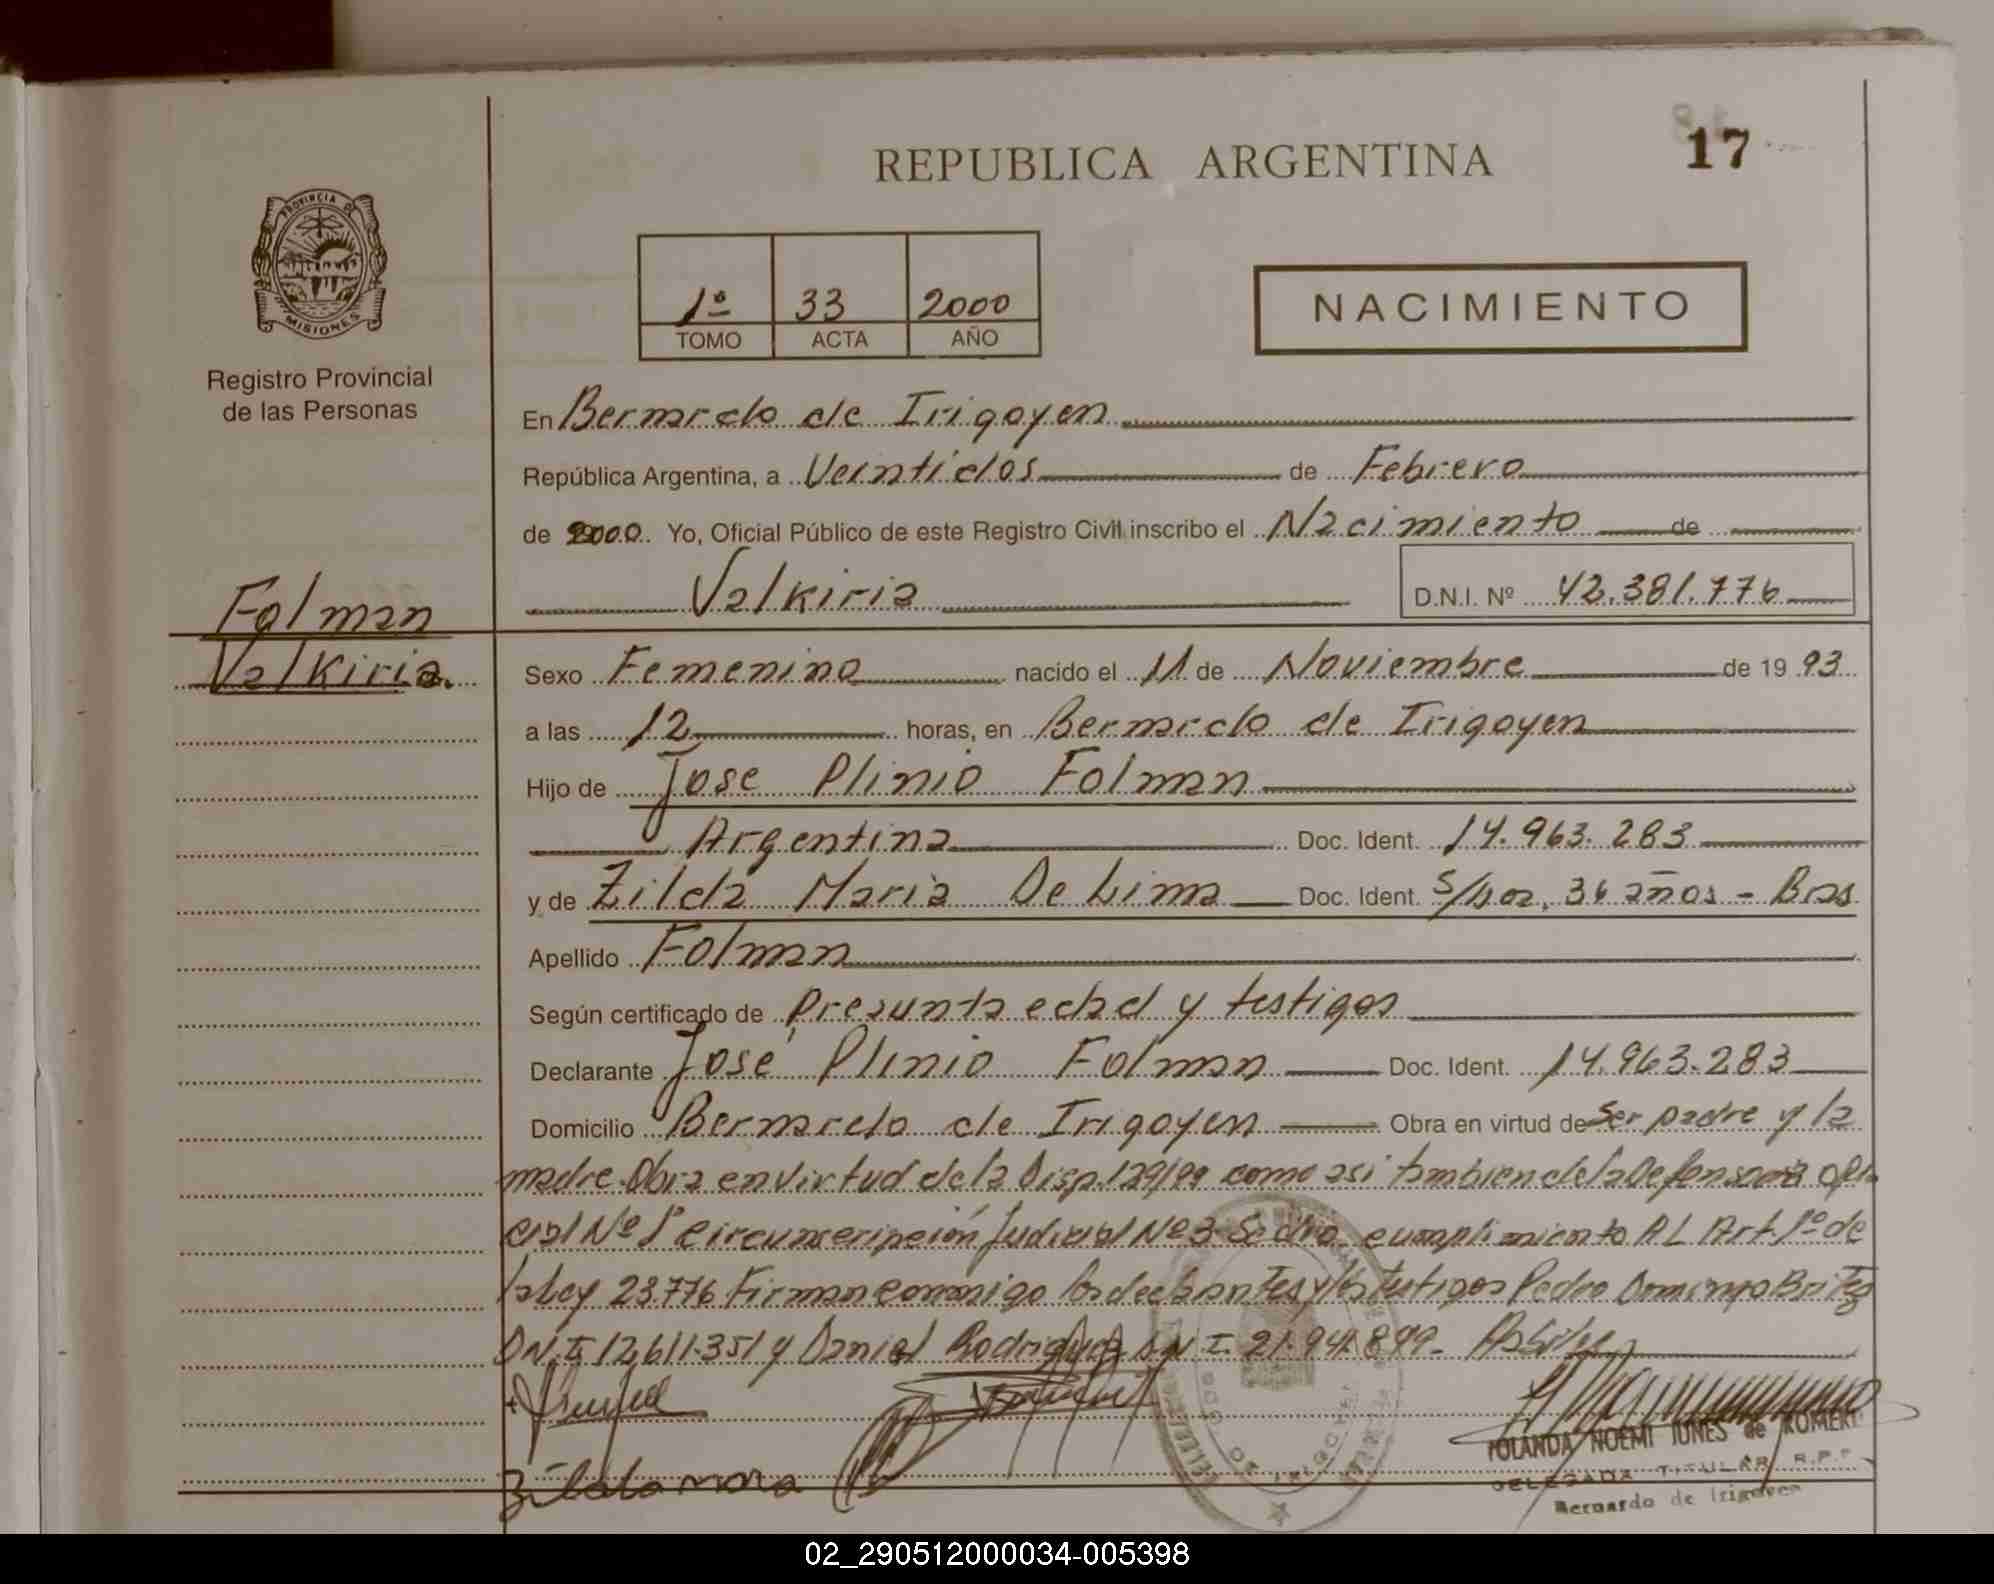 REPUBLICA ARGENTINA
17
PROVINCIA DE
MISIONES
Registro Provincial
de las Personas
1º 33 2000
TOMO ACTA AÑO
NACIMIENTO
En Bernardo de Irigoyen
República Argentina, a Veintidos de Febrero
de 2000. Yo, Oficial Público de este Registro Civil inscribo el Nacimiento de
Valkiria D.N.I. Nº 42.381.776
Folman
Valkiria.
Sexo Femenino nacido el 11 de Noviembre de 19 93
a las 12 horas, en Bernardo de Irigoyen
Hijo de Jose Plinio Folman
Argentina Doc. Ident. 14.963.283
y de Zilda Maria De Lima Doc. Ident. S/Doc, 36 años - Bras
Apellido Folman
Según certificado de presunta edad y testigos
Declarante José Plinio Folman Doc. Ident. 14.963.283
Domicilio Bernardo de Irigoyen Obra en virtud de Ser padre y la
madre. Obra en virtud de la Disp. 129/99 como asi tambien de la Defensoria ofi
cial Nº 1º circunscripción Judicial Nº 3 cumplimiento AL Art. 1º de
la Ley 23.776 Firman conmigo los declarantes y los testigos Pedro Domingo Britez
D.N.I. 12.611.351 y Daniel Rodriguez D.N.I.
YOLANDA NOEMI IUNES de ROMERO
DELEGADA TITULAR R.P.P.
Bernardo de Irigoyen
02_290512000034-005398